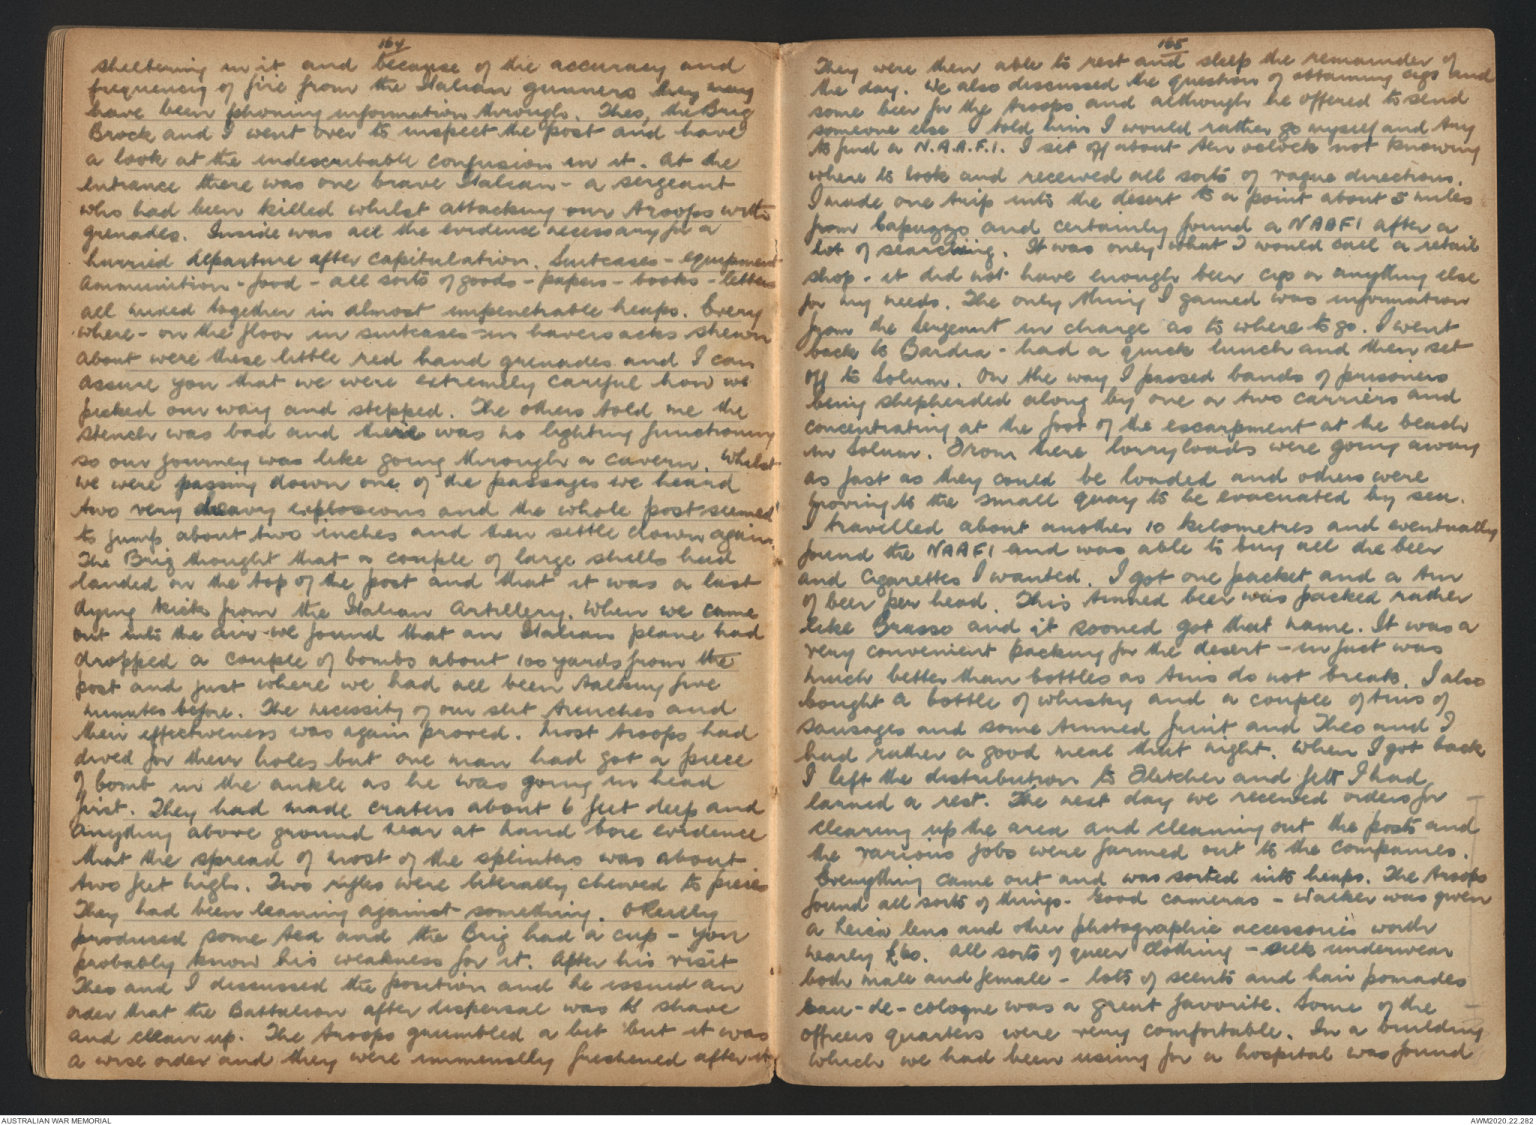 164
sheltering in it and because of the accuracy and
frequency of fire from the Italian gunners they may
have been phoning information through. Theo, the Brig
Brock and I went over to inspect the post and have
a look at the indescribable confusion in it. At the
entrance there was one brave Italian - a sergeant
who had been killed whilst attacking our troops with
grenades. Inside was all the evidence necessary for a
hurried departure after capitulation. Suitcases - equipment
ammunition - food - all sorts of goods - papers - books - letters
all mixed together in almost impenetrable heaps. Every
where - on the floor in suitcases - in haversacks strewn
about were these little red hand grenades and I can
assure you that we were extremely careful how we
picked our way and stepped. The others told me the
stench was bad and there was no lighting functioning
so our journey was like going through a cavern. Whilst
we were passing down one of the passages we heard
two very heavy explosions and the whole post seemed
to jump about two inches and then settle down again.
The Brig thought that a couple of large shells had
landed on the top of the post and that it was a last
dying kick from the Italian artillery. When we came
out into the air we found that an Italian plane had
dropped a couple of bombs about 100 yards from the
post and just where we had all been talking five
minutes before. The necessity of our slit trenches and
their effectiveness was again proved. Most troops had
dived for their holes but one man had got a piece
of bomb in the ankle as he was going in head
first. They had made craters about 6 feet deep and
anything above ground near at hand bore evidence
that the spread of most of the splinters was about
two feet high. Two rifles were literally chewed to pieces
They had been leaning against something. OKeilly
produced some tea and the Brig had a cup - you
probably know his weakness for it. After his visit
Theo and I discussed the position and he issued an
order that the Battalion after dispersal was to shave
and clean up. The troops grumbled a bit but it was
a wise order and they were immensely freshened after it
165
They were then able to rest and sleep the remainder of
the day. We also discussed the question of obtaining cigs and
some beer for the troops and although he offered to send
someone else I told him I would rather go myself and try
to find a N.A.A.F.I. I set off about ten oclock not knowing
where to look and received all sorts of vague directions.
I made one trip into the desert to a point about 5 miles
from Capuzzo and certainly found a NAAFI after a
lot of searching. It was only what I would call a retail
shop - it did not have enough beer cigs or anything else
for my needs. The only thing I gained was information
from the Sergeant in charge as to where to go. I went
back to Bardia - had a quick lunch and then set
off to Solum. On the way I passed bands of prisoners
being shepherded along by one or two carriers and
concentrating at the foot of the escarpment at the beach
in Solum. From here lorryloads were going away
as fast as they could be loaded and others were
moving to the small quay to be evacuated by sea.
I travelled about another 10 kilometres and eventually
found the NAAFI and was able to buy all the beer
and cigarettes I wanted. I got one packet and a tin
of beer per head. This tinned beer was packed rather
like Brasso and it sooned got that name. It was a
very convenient packing for the desert - in fact was
much better than bottles as tins do not break. I also
bought a bottle of whisky and a couple of tins of
sausages and some tinned fruit and Theo and I
had rather a good meal that night. When I got back
I left the distribution to Fletcher and felt I had
earned a rest. The next day we received orders for
clearing up the area and cleaning out the posts and
the various jobs were farmed out to the companies.
Everything came out and was sorted into heaps. The troops
found all sorts of things. Good cameras - Walker was given
a Leica lens and other photographic accessories worth
nearly £60. All sorts of queer clothing - silk underwear
both male and female - lots of scents and hair pomades
Eau-de-cologne was a great favorite. Some of the
officers quarters were very comfortable. In a building
which we had been using for a hospital was found
AUSTRALIAN WAR MEMORIAL
AWM2020.22.282